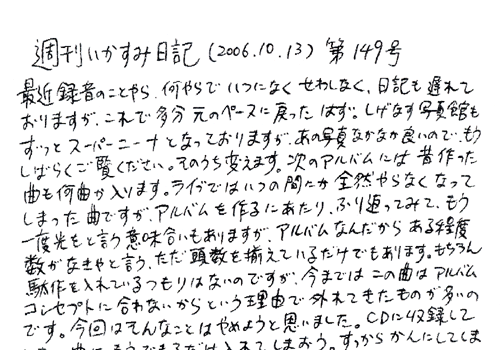 週刊いかすみ日記 (2006.10.13) 第149号
最近録音のことやら、何やらでいつになくせわしなく、日記も遅れて
おりますが、これで多分元のペースに戻ったはず。しげなす写真館も
ずっとスーパーニーナとなっておりますが、あの写真なかなか良いので、もう
しばらくご覧ください。そのうち変えます。次のアルバムには昔作った
曲も何曲か入ります。ライブではいつの間にか全然やらなくなって
しまった曲ですが、アルバムを作るにあたり、ふり返ってみて、もう
一度光をと言う意味合いもありますが、アルバムなんだからある程度
数がなきゃと言う、ただ頭数を揃えているだけでもあります。もちろん
駄作を入れているつもりはないのですが、今まではこの曲はアルバム
コンセプトに合わないからという理由で外れてきたものが多いの
です。今回はそんなことはやめようと思いました。CDに収録して